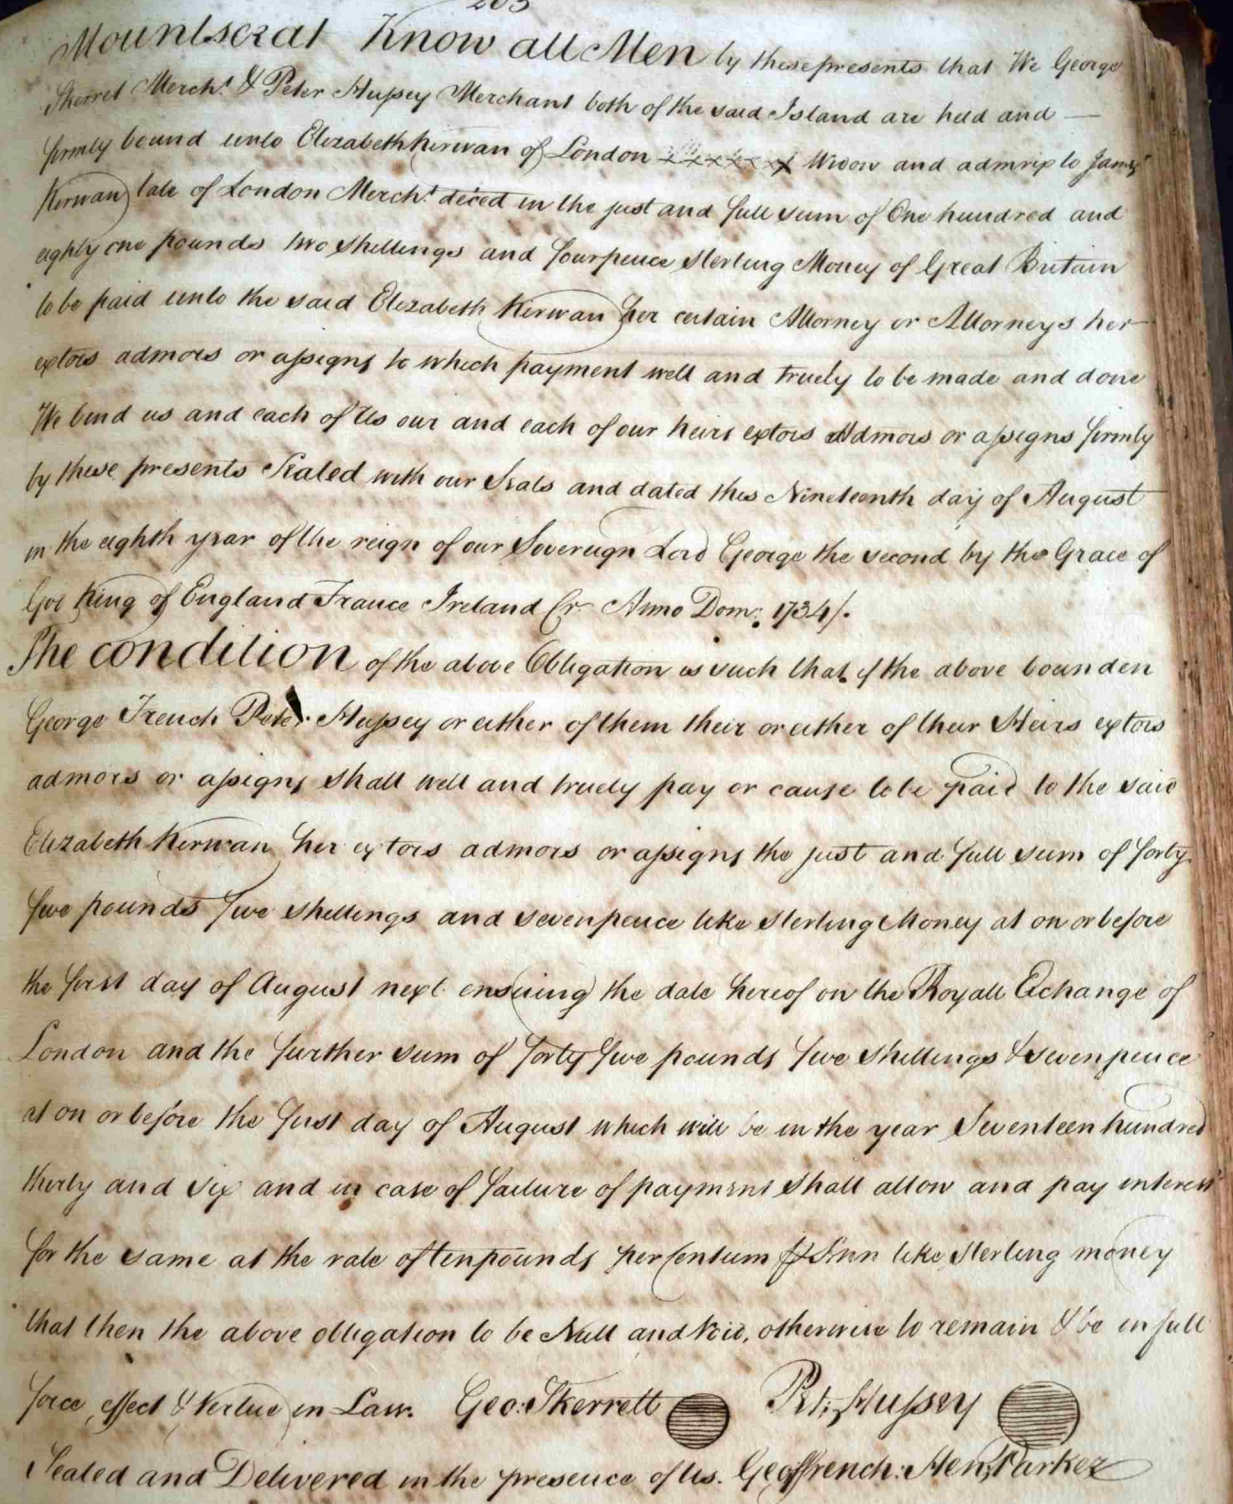 203
Mountserat Know all Men by these presents that We George
Skerret Merch.t & Peter Hussey Merchant both of the said Island are held and
firmly bound unto Elizabeth Kirwan of London Widow and admrix to James
Kirwan late of London Merch.t deced in the just and full sum of One hundred and
eighty one pounds two shillings and fourpence sterling Money of Great Britain
to be paid unto the said Elizabeth Kirwan her certain Attorney or Attorneys her
extors admors or assigns to which payment well and truely to be made and done
We bind us and each of Us our and each of our heirs extors Admors or assigns firmly
by these presents Sealed with our Seals and dated this Nineteenth day of August
in the eighth year of the reign of our Sovereign Lord George the second by the Grace of
God King of England France Ireland &c Anno Dom: 1734/.
The condition of the above Obligation is such that if the above bounden
George French Peter Hussey or either of them their or either of their Heirs extors
admors or assigns shall well and truely pay or cause to be paid to the said
Elizabeth Kerwan her extors admors or assigns the just and full sum of forty
five pounds five shillings and sevenpence like sterling Money at on or before
the first day of August next ensuing the date hereof on the Royall Exchange of
London and the further sum of forty five pounds five shillings & sevenpence
at on or before the first day of August which will be in the year Seventeen hundred
thirty and six and in case of failure of payment shall allow and pay interest
for the same at the rate of ten pounds per Centum Ann like sterling money
that then the above obligation to be Null and Void, otherwise to remain & be in full
force effect & Vertue in Law. Geo: Skerrett Pet: Hussey
Sealed and Delivered in the presence of Us. Geo ffrench: Hen: Parker